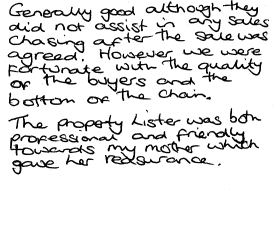 Generally good although they
did not assist in any sales
chasing after the sale was
agreed. However we were
fortunate with the quality
of the buyers and the
bottom of the chain.
The property Lister was both
professional and friendly
towards my mother which
gave her reassurance.